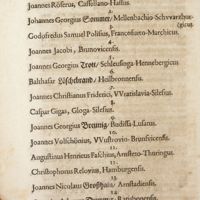 Joannes Röserus, Cassellano-Hassus.
2.
Johannes Georgius Sommer, Mellenbachio-Schvvarzburgicus.
3.
Godofredus Samuel Polisius, Francofurto-Marchicus.
4.
Joannes Jacobi, Brunovicensis.
5.
Joannes Georgius Trott, Schleusinga-Hennebergicus
6.
Balthasar Löschebrand, Heilbronnensis.
7.
Joannes Christianus Friderici, VVratislavia-Silesus.
8.
Caspar Gigas, Gloga-Silesus.
9.
Joannes Georgius Breunig, Budissa-Lusatus.
10.
Joannes Volschönius, VVustrovio-Brunsvicensis.
11.
Augustinus Henricus Faschius, Arnsteto-Thuringus.
12.
Christophorus Relovius, Hamburgensis.
13.
Joannes Nicolaus Großhain, Arnstadiensis.
14